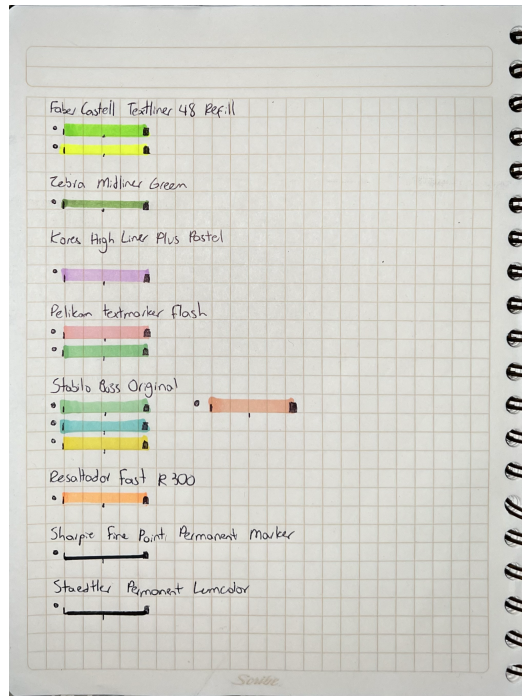 Faber Castell Textliner 48 Refill
Zebra Midliner Green
Kores High Liner Plus Pastel
Pelikan textmarker flash
Stabilo Boss Original
Resaltador Fast R 300
Sharpie Fine Point Permanent Marker
Staedtler Permanent Lumcolor
Scribe